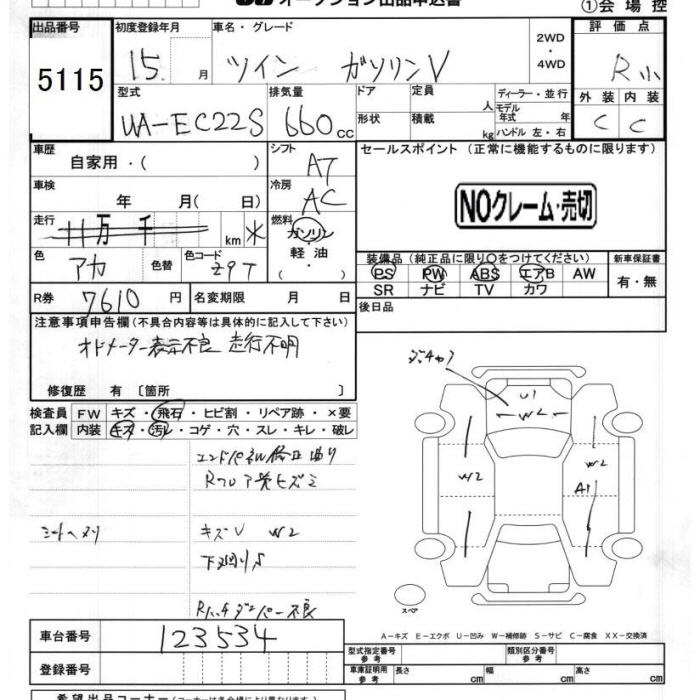 オークション出品申込書
①会場控
出品番号 初度登録年月 車名・グレード 評価点
5115 15 月 ツイン ガソリンV 2WD ・ 4WD R小
型式 排気量 ドア 定員 ディーラー・並行 外装 内装
UA-EC22S 660 CC 形状 積載 人 kg モデル年式 年 ハンドル 左・右 C C
車歴 シフト セールスポイント (正常に機能するものに限ります)
自家用・( ) AT
車検 冷房
年 月( 日) AC NOクレーム・売切
走行 燃料
万 千 km ガソリン
軽油
( ・ )
色 色替 色コード 装備品 (純正品に限り○をつけてください) 新車保証書
アカ Z9T PS PW ABS エアB AW 有・無
SR ナビ TV カワ
R券 7610 円 名変期限 月 日 後日品
注意事項申告欄 (不具合内容等は具体的に記入して下さい)
オドメーター表示不良 走行不明
修復歴 有 〔箇所 〕
検査員 FW キズ・飛石・ヒビ割・リペア跡・×要
記入欄 内装 キズ・汚レ・コゲ・穴・スレ・キレ・破レ
エンドパネル修正曲り
Rフロア先ヒズミ
キズV W2
Rハッチダンパー不良
U1
W2
W2
W2
A1
スペア
A-キズ E-エクボ U-凹み W-補修跡 S-サビ C-腐食 XX-交換済
車台番号 123534
登録番号
型式指定番号 参考 類別区分番号 参考
車庫証明用 参考 長さ cm 幅 cm 高さ cm
希望出品コーナー